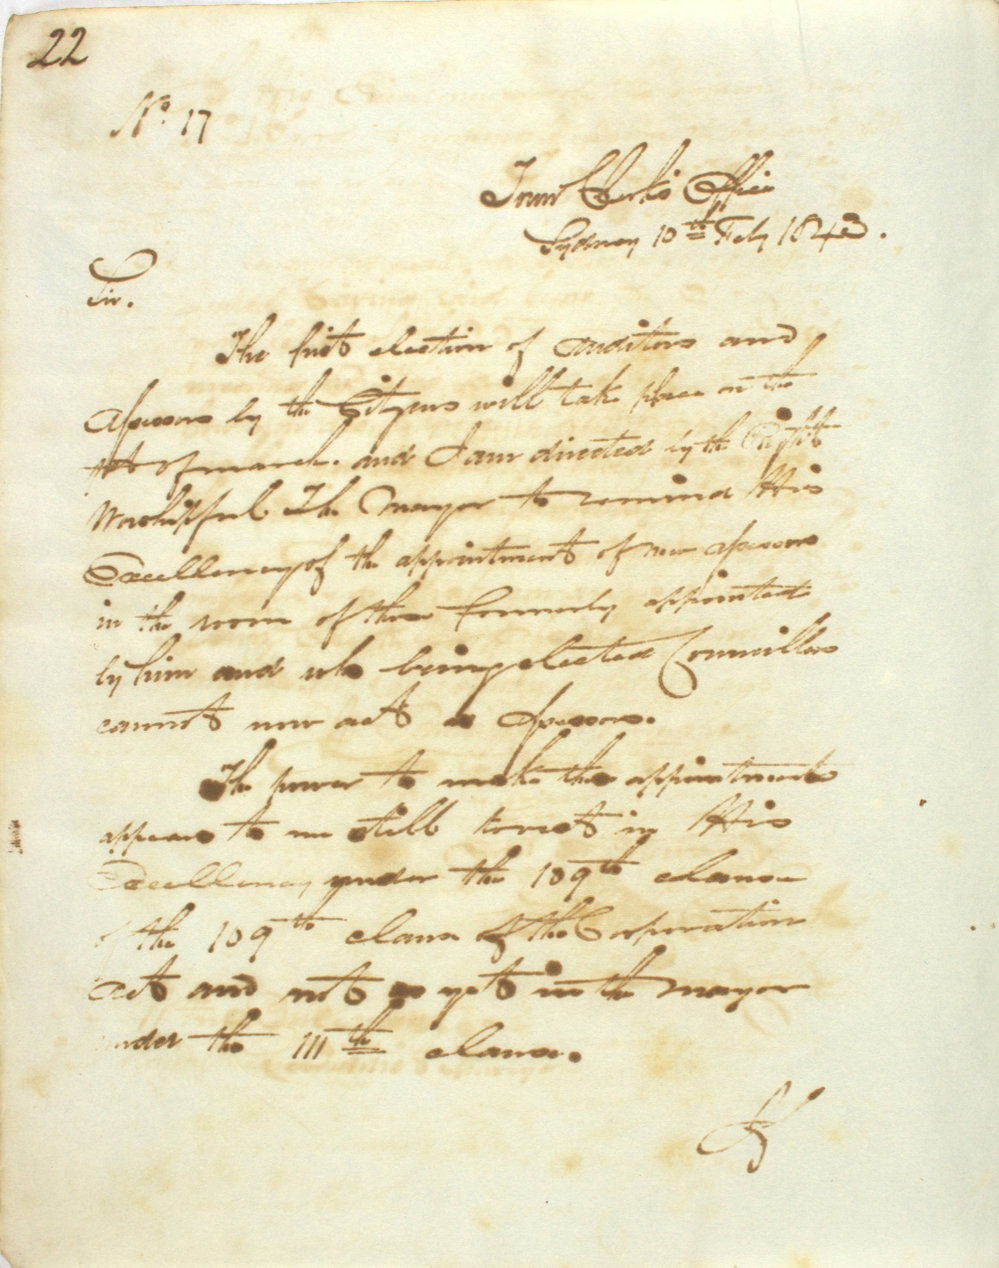 22
No. 17
Town Clerk's Office
Sydney 10th Feby 1843.
Sir.
The first election of auditors and
assessors by the Citizens will take place on the
1st of march. and I am directed by the Right
Worshipful The Mayor to remind His
Excellency of the appointment of new assessors
in the room of those formerly appointed
by him and who being elected Councillors
cannot now act as assessors.
The power to make these appointments
appears to me still to rest in His
Excellency under the 109th clause
of the 109th clause of the Corporation
act and not as yet in the mayor
under the 111th clause.